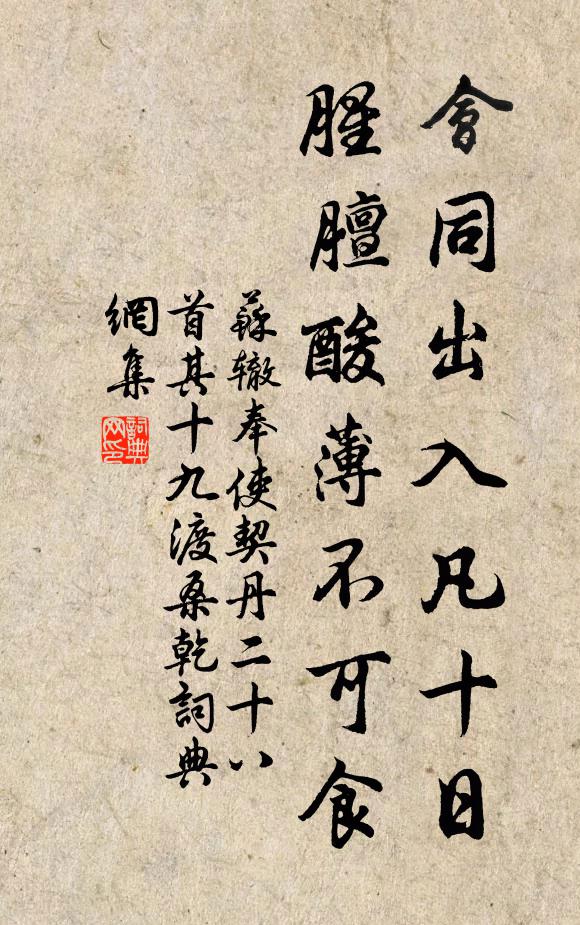 會同出入凡十日
腥膻酸薄不可食
蘇辙奉使契丹二十八
首其十九渡桑乾詞典
網集
詞典
网印